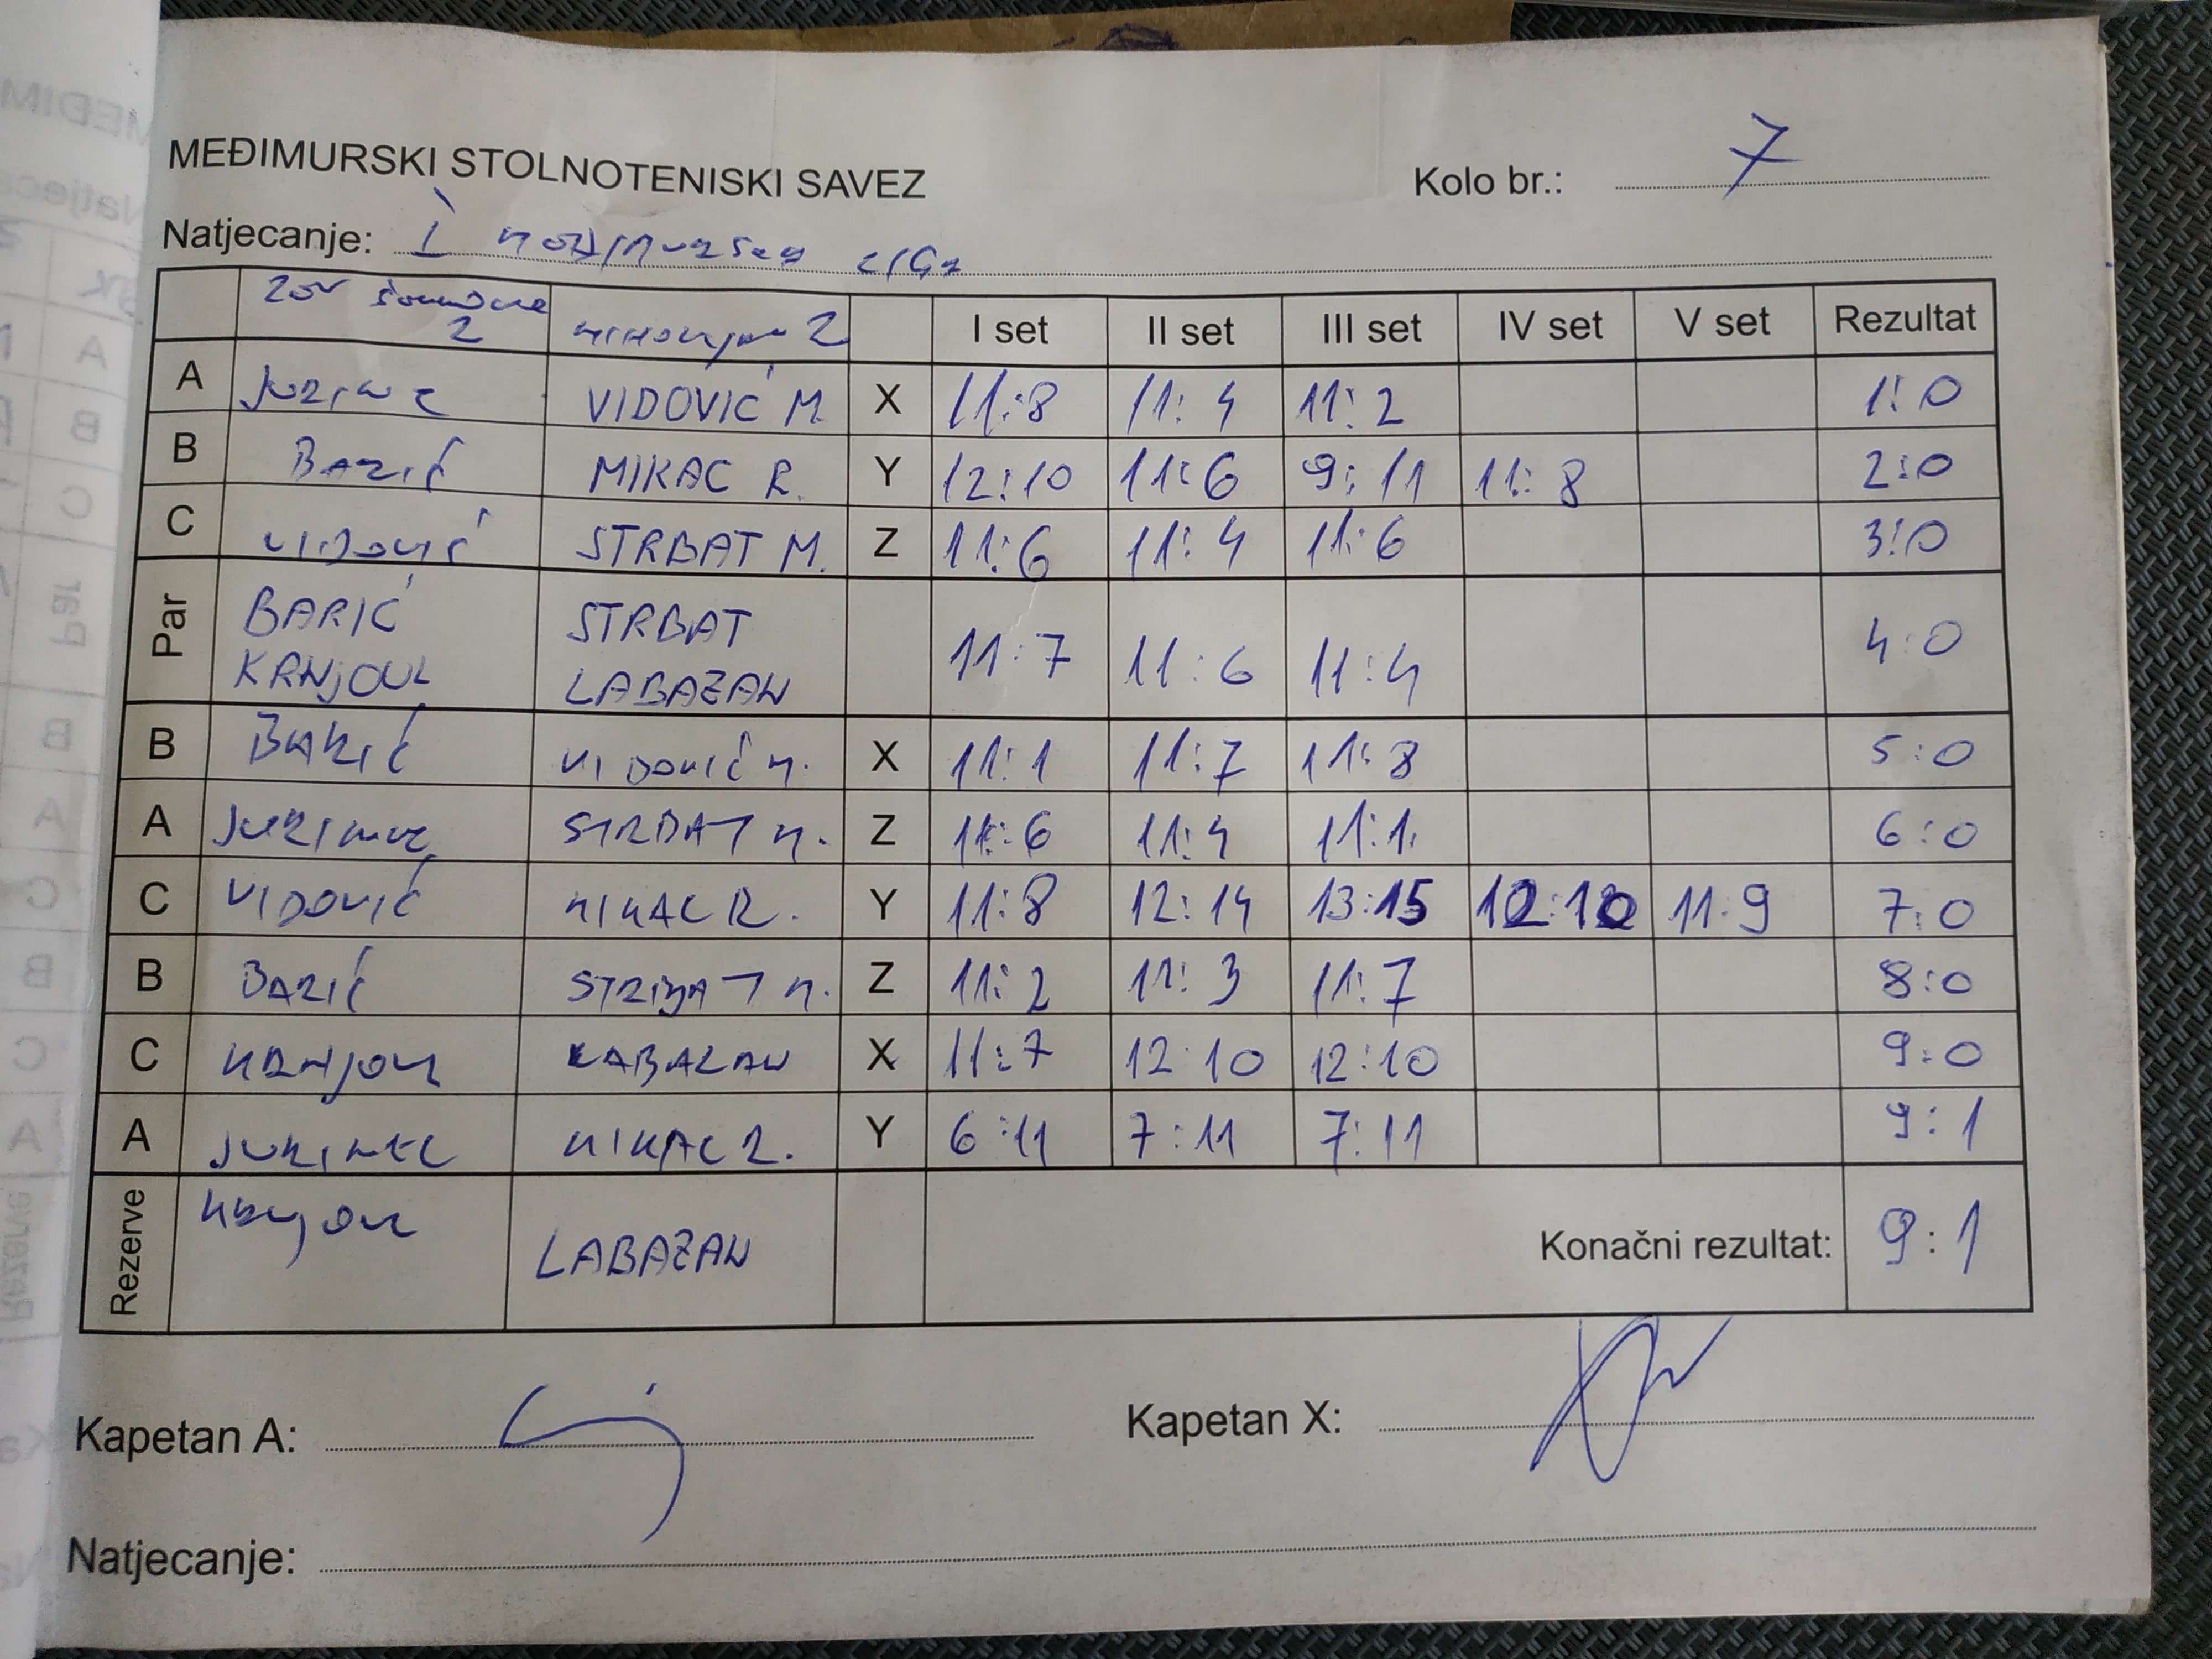 MEĐIMURSKI STOLNOTENISKI SAVEZ
Kolo br.: 7
Natjecanje: I
2 2 I set II set III set IV set V set Rezultat
A VIDOVIĆ M. X 11:8 11:4 11:2 1:0
B BARIĆ MIKAC R. Y 12:10 11:6 9:11 11:8 2:0
C VIDOVIĆ STRBAT M. Z 11:6 11:4 11:6 3:0
Par BARIĆ STRBAT 11:7 11:6 11:4 4:0
LABAZAN
B BARIĆ VIDOVIĆ M. X 11:1 11:7 11:8 5:0
A STRBAT M. Z 11:6 11:4 11:1 6:0
C VIDOVIĆ MIKAC R. Y 11:8 12:14 13:15 12:10 11:9 7:0
B BARIĆ STRBAT M. Z 11:2 11:3 11:7 8:0
C LABAZAN X 11:7 12:10 12:10 9:0
A JURINEC MIKAC R. Y 6:11 7:11 7:11 9:1
Rezerve LABAZAN Konačni rezultat: 9:1
Kapetan A: Kapetan X:
Natjecanje: